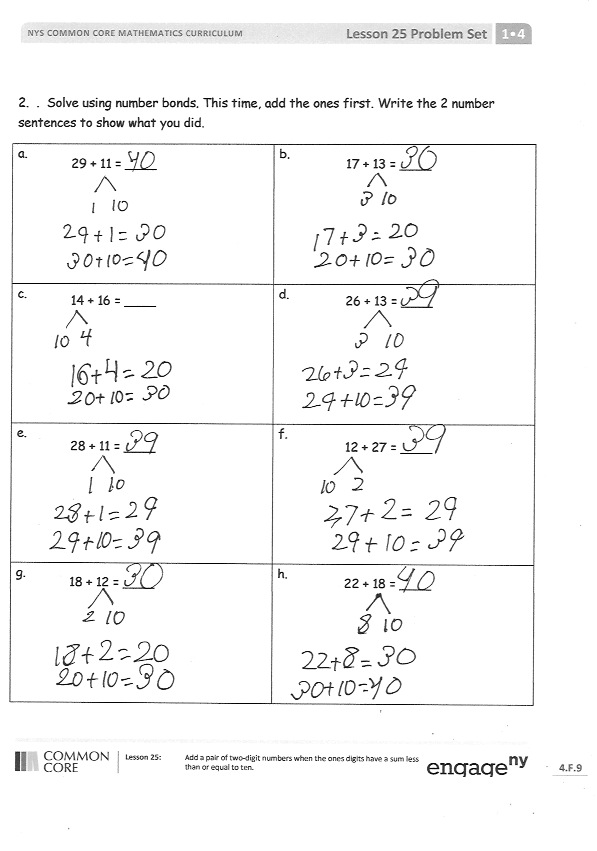 NYS COMMON CORE MATHEMATICS CURRICULUM Lesson 25 Problem Set 1•4
2. . Solve using number bonds. This time, add the ones first. Write the 2 number
sentences to show what you did.
a.
29 + 11 = 40
1 10
29+1=30
30+10=40
b.
17 + 13 = 30
3 10
17+3=20
20+10=30
c.
14 + 16 = ____
10 4
16+4=20
20+10=30
d.
26 + 13 = 39
3 10
26+3=29
29+10=39
e.
28 + 11 = 39
1 10
28+1=29
29+10=39
f.
12 + 27 = 39
10 2
27+2=29
29+10=39
g.
18 + 12 = 30
2 10
18+2=20
20+10=30
h.
22 + 18 = 40
8 10
22+8=30
30+10=40
COMMON CORE
Lesson 25: Add a pair of two-digit numbers when the ones digits have a sum less
than or equal to ten.
engage ny
4.F.9